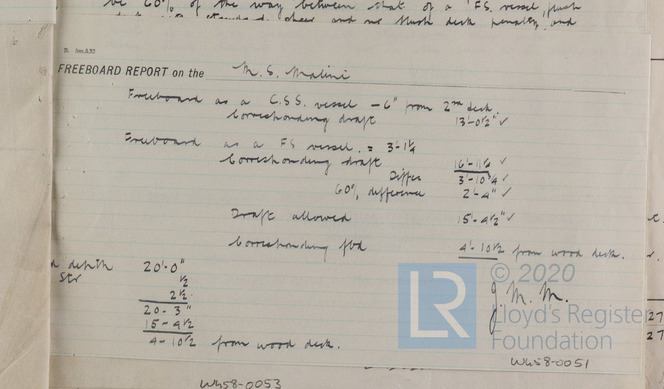 be 60% of the way between that of a "F.S. vessel, flush
deck with standard sheer and no flush deck penalty, and
FREEBOARD REPORT on the M.S. Malini
Freeboard as a C.S.S. vessel - 6" from 2nd deck.
Corresponding draft 13'-0½" ✓
Freeboard as a FS vessel. = 3'-1¼
Corresponding draft 16'-11¼ ✓
Differ 3'-10¾ ✓
60% difference 2'-4" ✓
Draft allowed 15'-4½" ✓
Corresponding fbd 4'-10½ from wood deck.
depth 20'-0"
Str ½
2½
20-3"
15-4½
4-10½ from wood deck.
J. M. M.
LR
© 2020
Lloyd's Register
Foundation
27
27
W458-0051
W458-0053